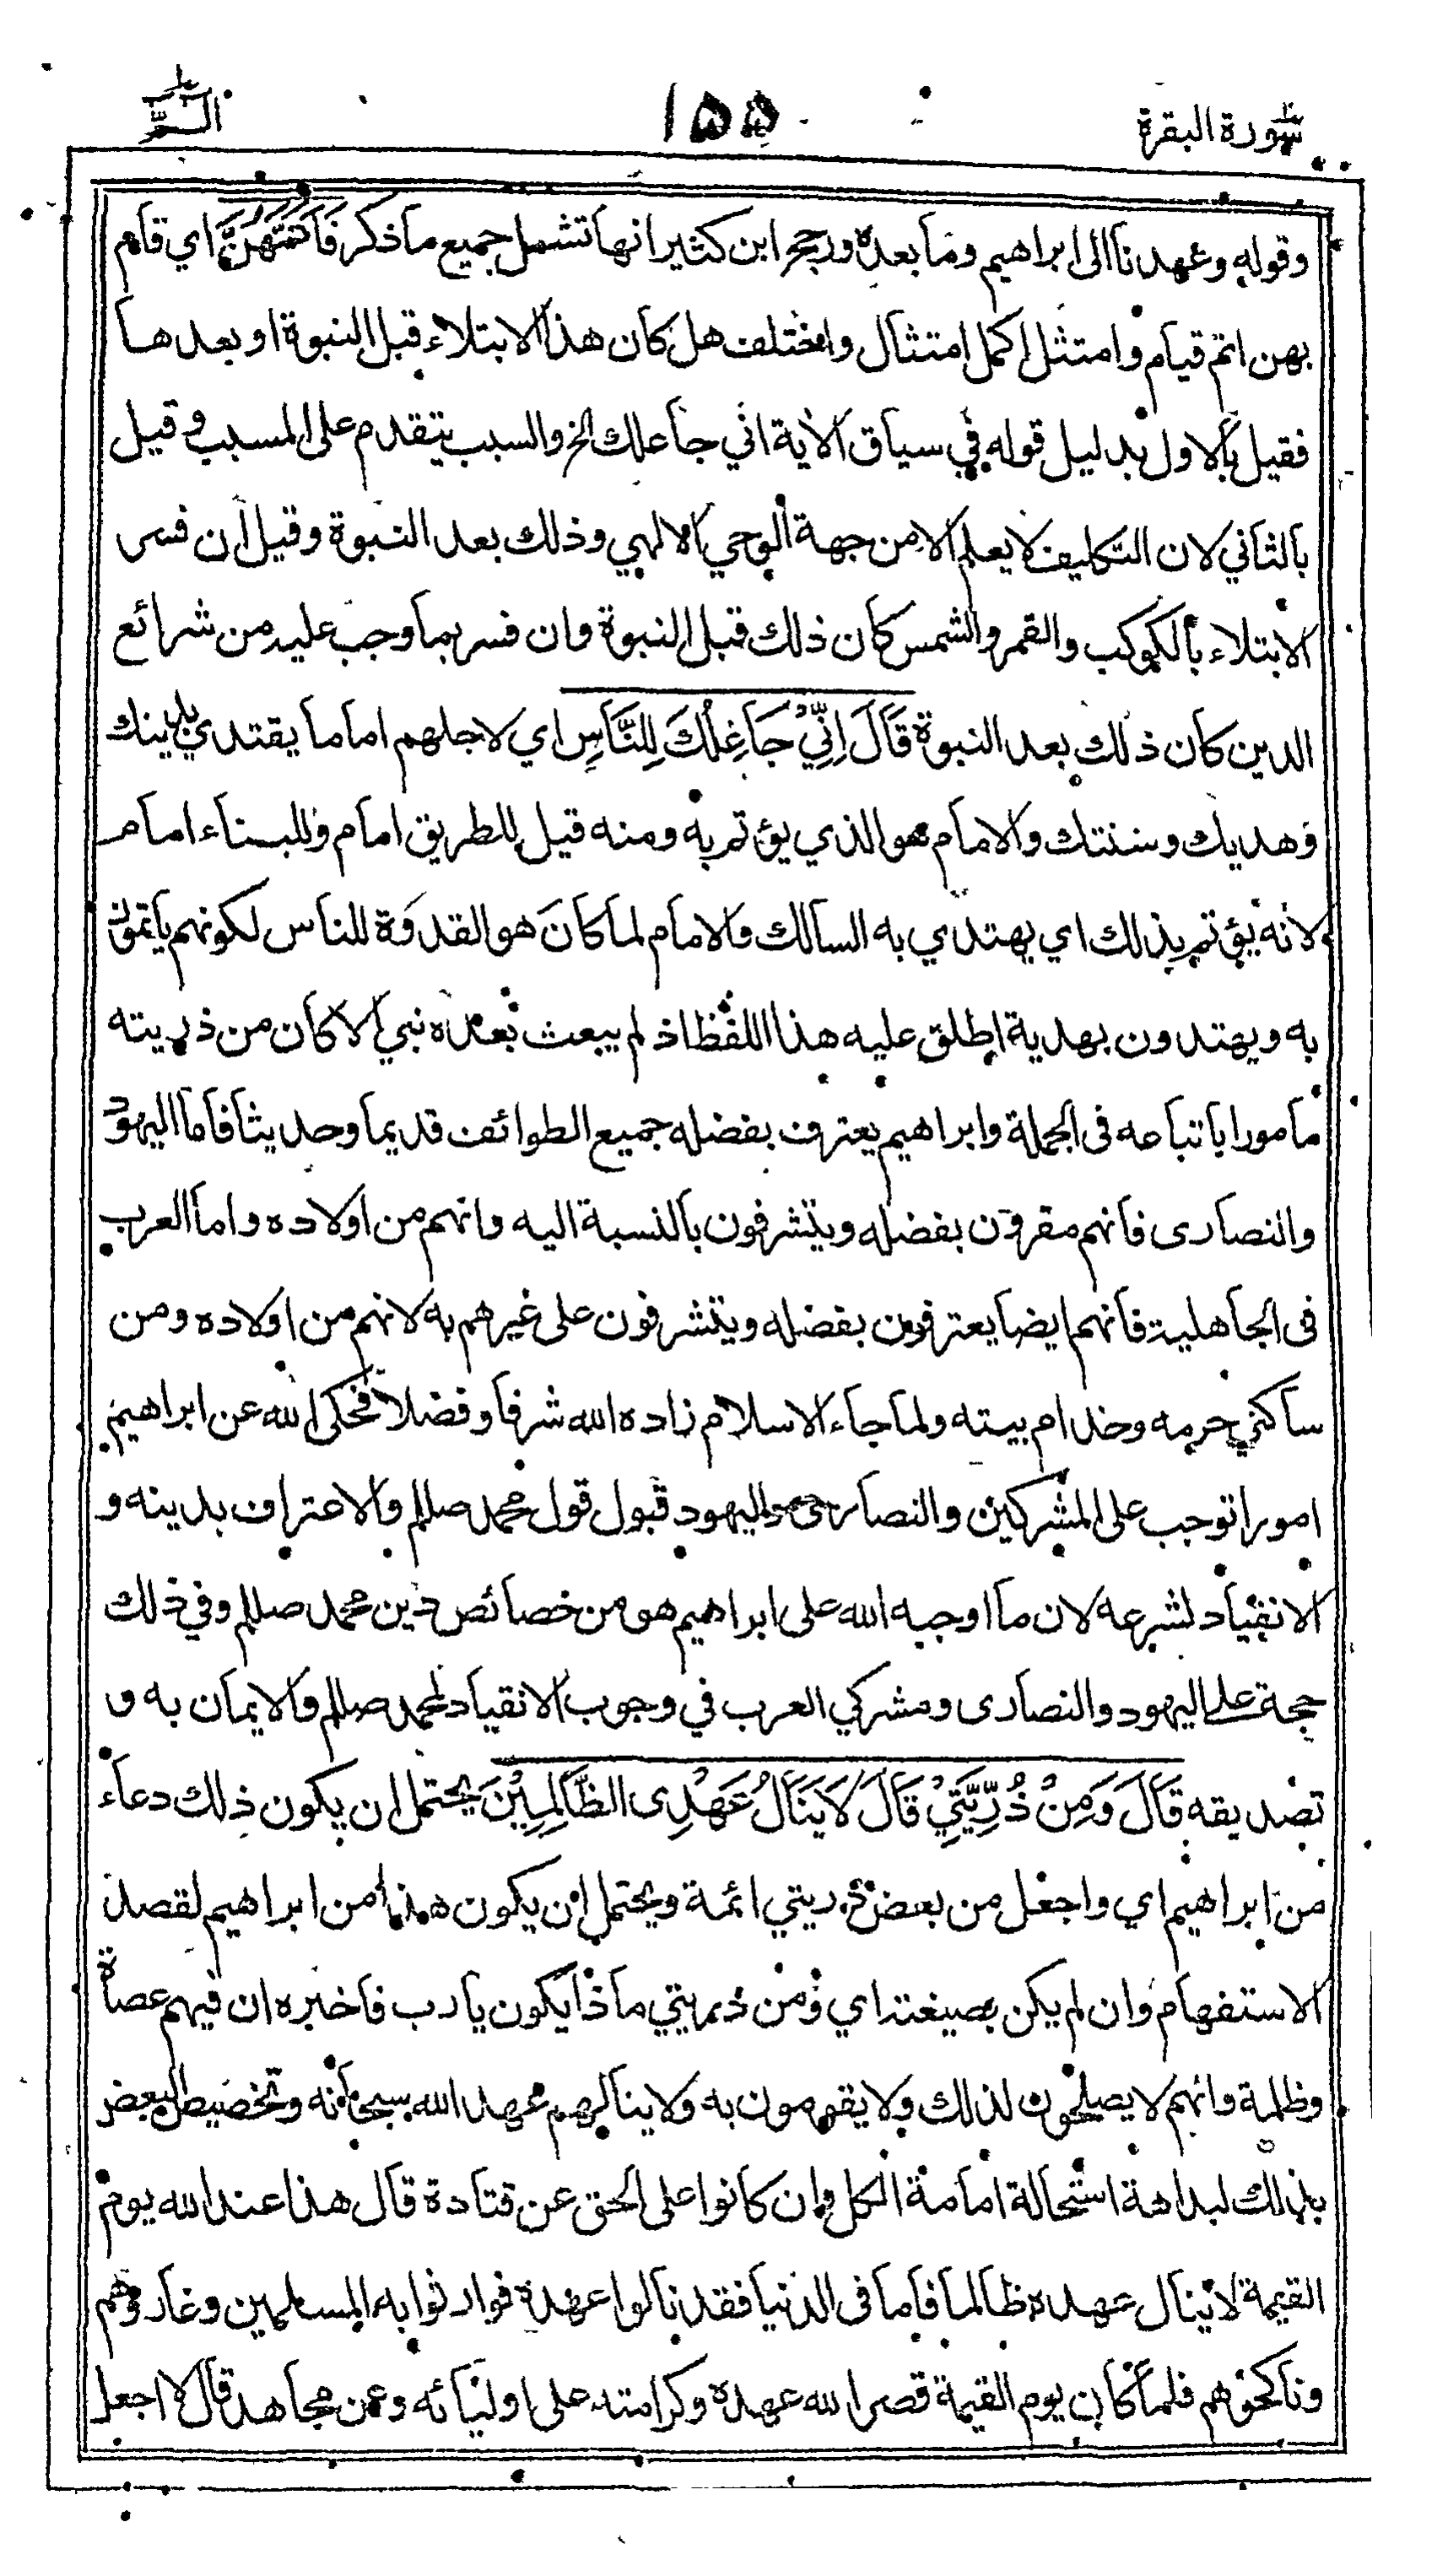 سورة البقرة
١٥٥
الۤمّ
وقوله وعهدنا الى ابراهيم وما بعده ورجح ابن كثير انها تشمل جميع ما ذكر فَاَتَمَّهُنَّ اي قام
بهن اتم قيام وامتثل اكمل امتثال واختلف هل كان هذا الابتلاء قبل النبوة او بعدها
فقيل بالاول بدليل قوله في سياق الآية اني جاعلك الخ والسبب يتقدم على المسبب وقيل
بالثاني لان التكليف لا يعلم الا من جهة الوحي الالهي وذلك بعد النبوة وقيل ان فسر
الابتلاء بالكوكب والقمر والشمس كان ذلك قبل النبوة وان فسر بما وجب عليه من شرائع
الدين كان ذلك بعد النبوة قَالَ اِنِّيْ جَاعِلُكَ لِلنَّاسِ اي لاجلهم اماما يقتدي بدينك
وهديك وسنتك والامام هو الذي يؤتم به ومنه قيل للطريق امام وللبناء امام
لانه يؤتم بذلك اي يهتدي به السالك والامام لما كان هو القدوة للناس لكونهم ياتمون
به ويهتدون بهدية اطلق عليه هذا اللفظ اذ لم يبعث بعده نبي الا كان من ذريته
مامورا باتباعه فى الجملة وابراهيم يعترف بفضله جميع الطوائف قديما وحديثا فاما اليهود
والنصارى فانهم مقرون بفضله ويتشرفون بالنسبة اليه وانهم من اولاده واما العرب
فى الجاهلية فانهم ايضا يعترفون بفضله ويتشرفون على غيرهم به لانهم من اولاده ومن
ساكني حرمه وخدام بيته ولما جاء الاسلام زاده الله شرفا وفضلا فحكى الله عن ابراهيم
امورا توجب على المشركين والنصارى واليهود قبول قول محمد صللم والاعتراف بدينه و
الانقياد لشرعه لان ما اوجبه الله على ابراهيم هو من خصائص دين محمد صللم وفي ذلك
حجة على اليهود والنصارى ومشركي العرب في وجوب الانقياد لمحمد صللم والايمان به و
تصديقه قَالَ وَمِنْ ذُرِّيَّتِيْ قَالَ لَا يَنَالُ عَهْدِى الظَّالِمِيْنَ يحتمل ان يكون ذلك دعاء
من ابراهيم اي واجعل من بعض ذريتي ائمة ويحتمل ان يكون هذا من ابراهيم لقصد
الاستفهام وان لم يكن بصيغته اي ومن ذريتي ماذا يكون يا رب فاخبره ان فيهم عصاة
وظلمة وانهم لا يصلحون لذلك ولا يقومون به ولا ينالهم عهد الله سبحانه وتخصيص البعض
بذلك لبداهة استحالة امامة الكل وان كانوا على الحق عن قتادة قال هذا عند الله يوم
القيمة لا ينال عهده ظالما فاما فى الدنيا فقد نالوا عهده فوارثوا به المسلمين وغازوهم
وناكحوهم فلما كان يوم القيمة قصر الله عهده وكرامته على اوليائه وعن مجاهد قال لا اجعل